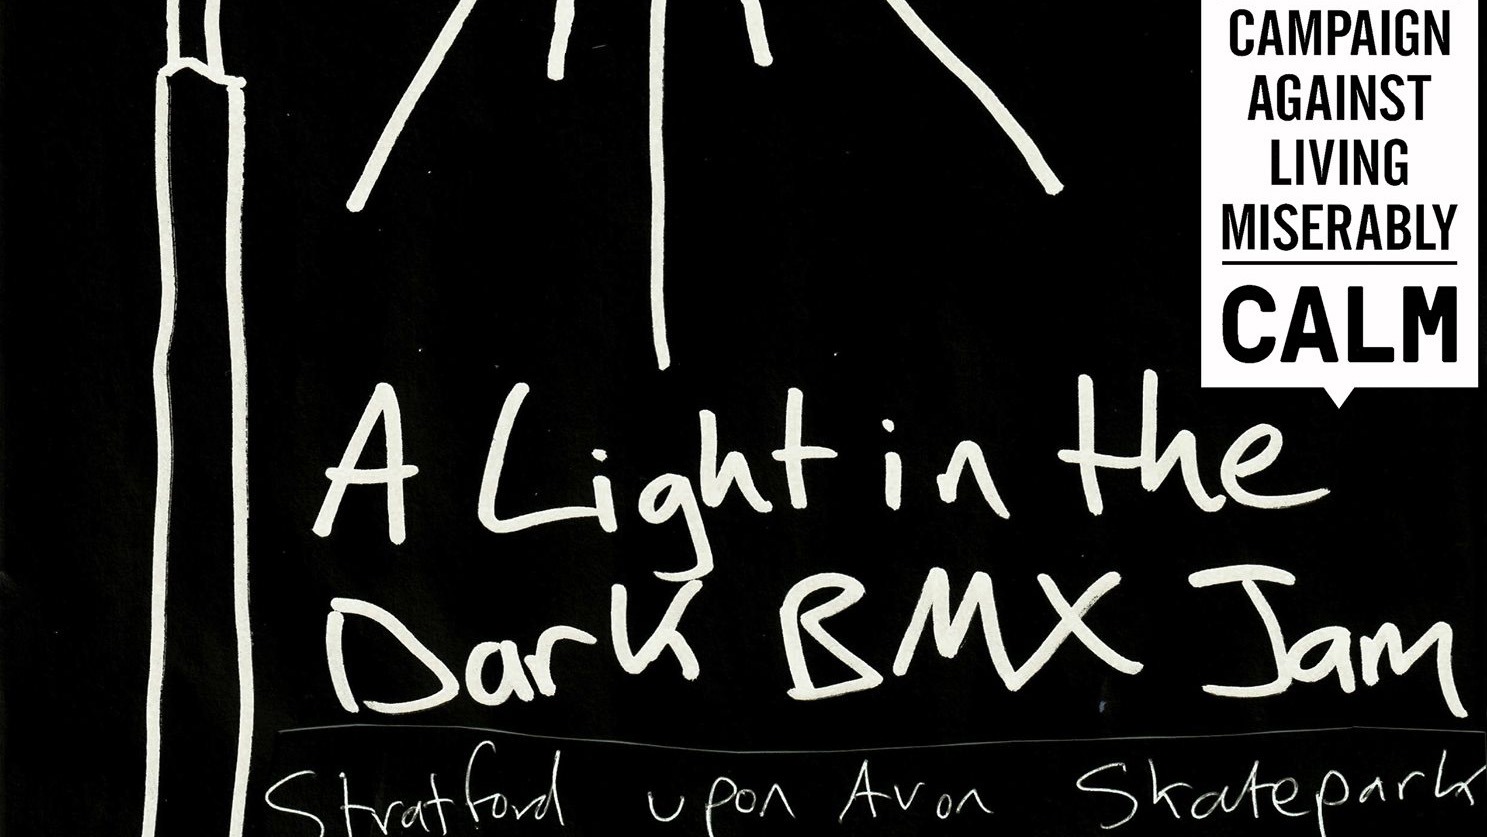 CAMPAIGN
AGAINST
LIVING
MISERABLY
CALM
A Light in the
Dark BMX Jam
Stratford upon Avon Skatepark